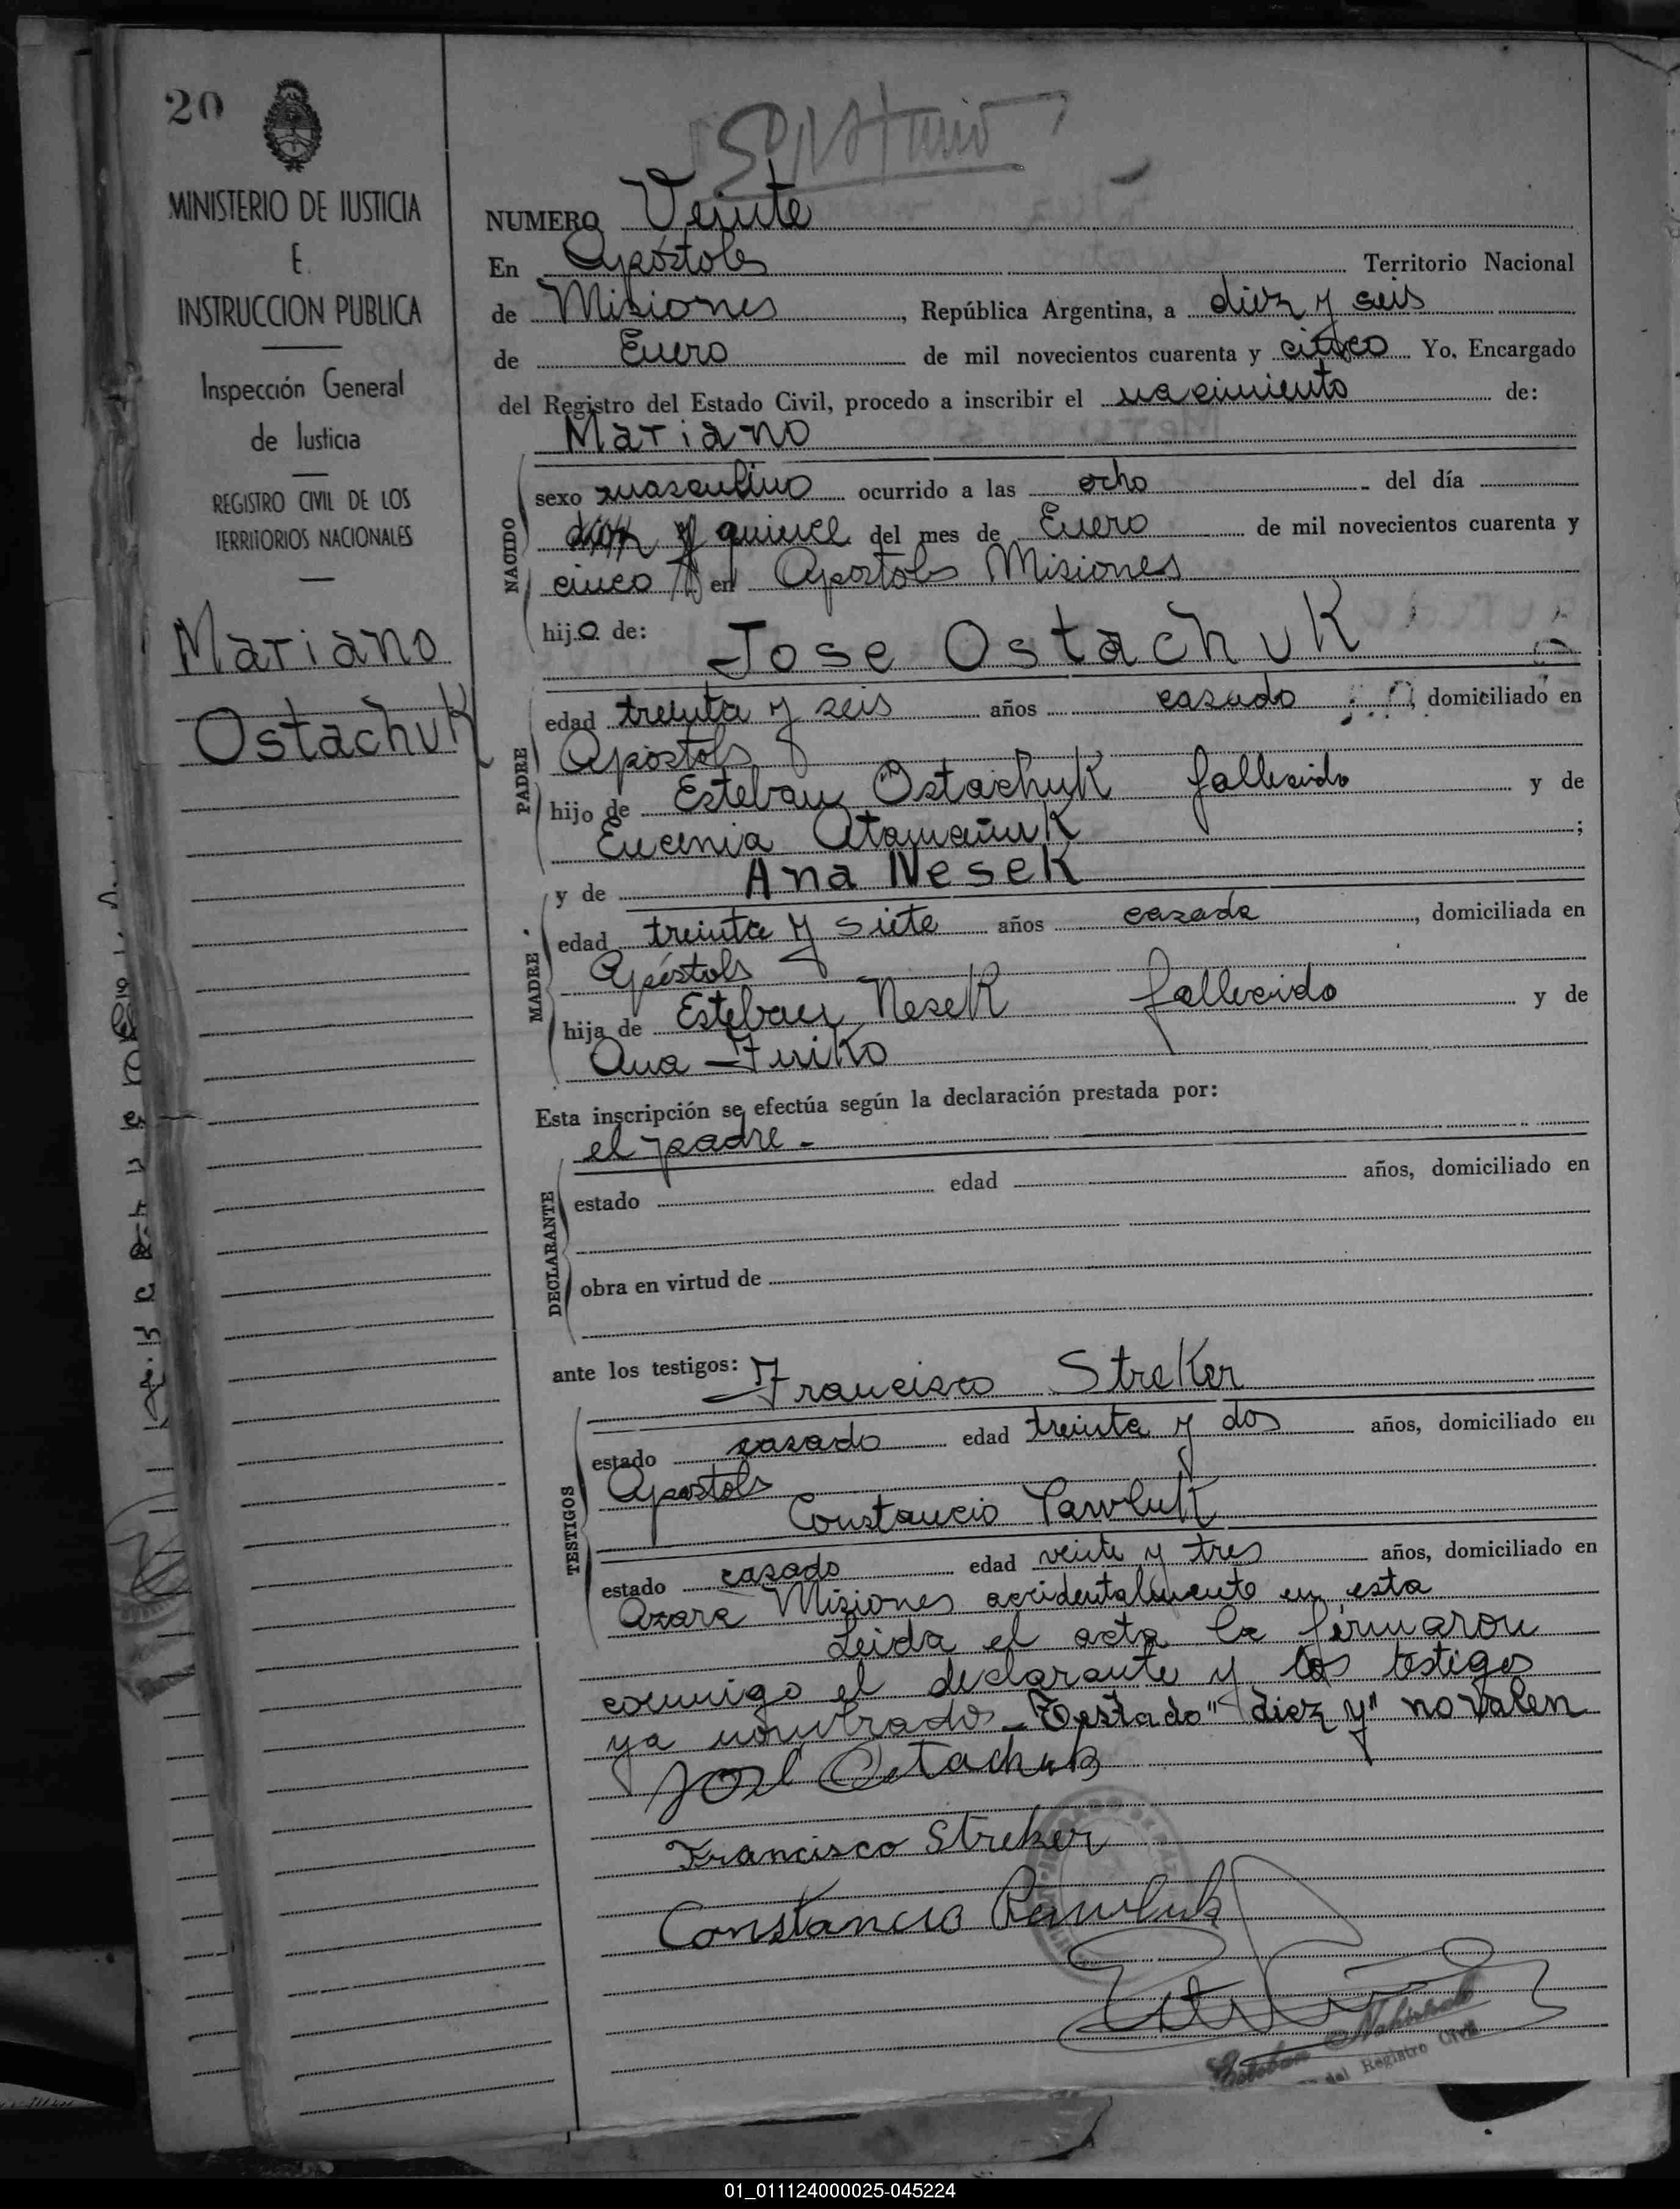 20
MINISTERIO DE JUSTICIA
E.
INSTRUCCION PUBLICA
Inspección General
de Justicia
REGISTRO CIVIL DE LOS
TERRITORIOS NACIONALES
Mariano
Ostachuk
NUMERO Veinte
En Apóstoles Territorio Nacional
de Misiones, República Argentina, a diez y seis
de Enero de mil novecientos cuarenta y cinco Yo, Encargado
del Registro del Estado Civil, procedo a inscribir el nacimiento de:
Mariano
NACIDO
sexo masculino ocurrido a las ocho del día
diez y quince del mes de Enero de mil novecientos cuarenta y
cinco en Apostoles Misiones
hijo de: Jose Ostachuk
PADRE
edad treinta y seis años casado, domiciliado en
Apostols
hijo de Esteban Ostachuk fallecido y de
Eucenia Atamañuk;
y de Ana Nesek
MADRE
edad treinta y siete años casada, domiciliada en
Apóstols
hija de Esteban Nesek fallecido y de
Ana
Esta inscripción se efectúa según la declaración prestada por:
el padre.-
DECLARANTE
estado edad años, domiciliado en
obra en virtud de
ante los testigos: Francisco Streker
TESTIGOS
estado casado edad treinta y dos años, domiciliado en
Apostols
Constancio Pawluk
estado casado edad veinte y tres años, domiciliado en
Azara Misiones accidentalmente en esta
Leida el acta la firmaron
conmigo el declarante y los testigos
ya nombrados - Testado "diez y" no valen
José Ostachuk
Francisco Streker
Constancio Pawluk
Esteban
del Registro Civil
01_011124000025-045224